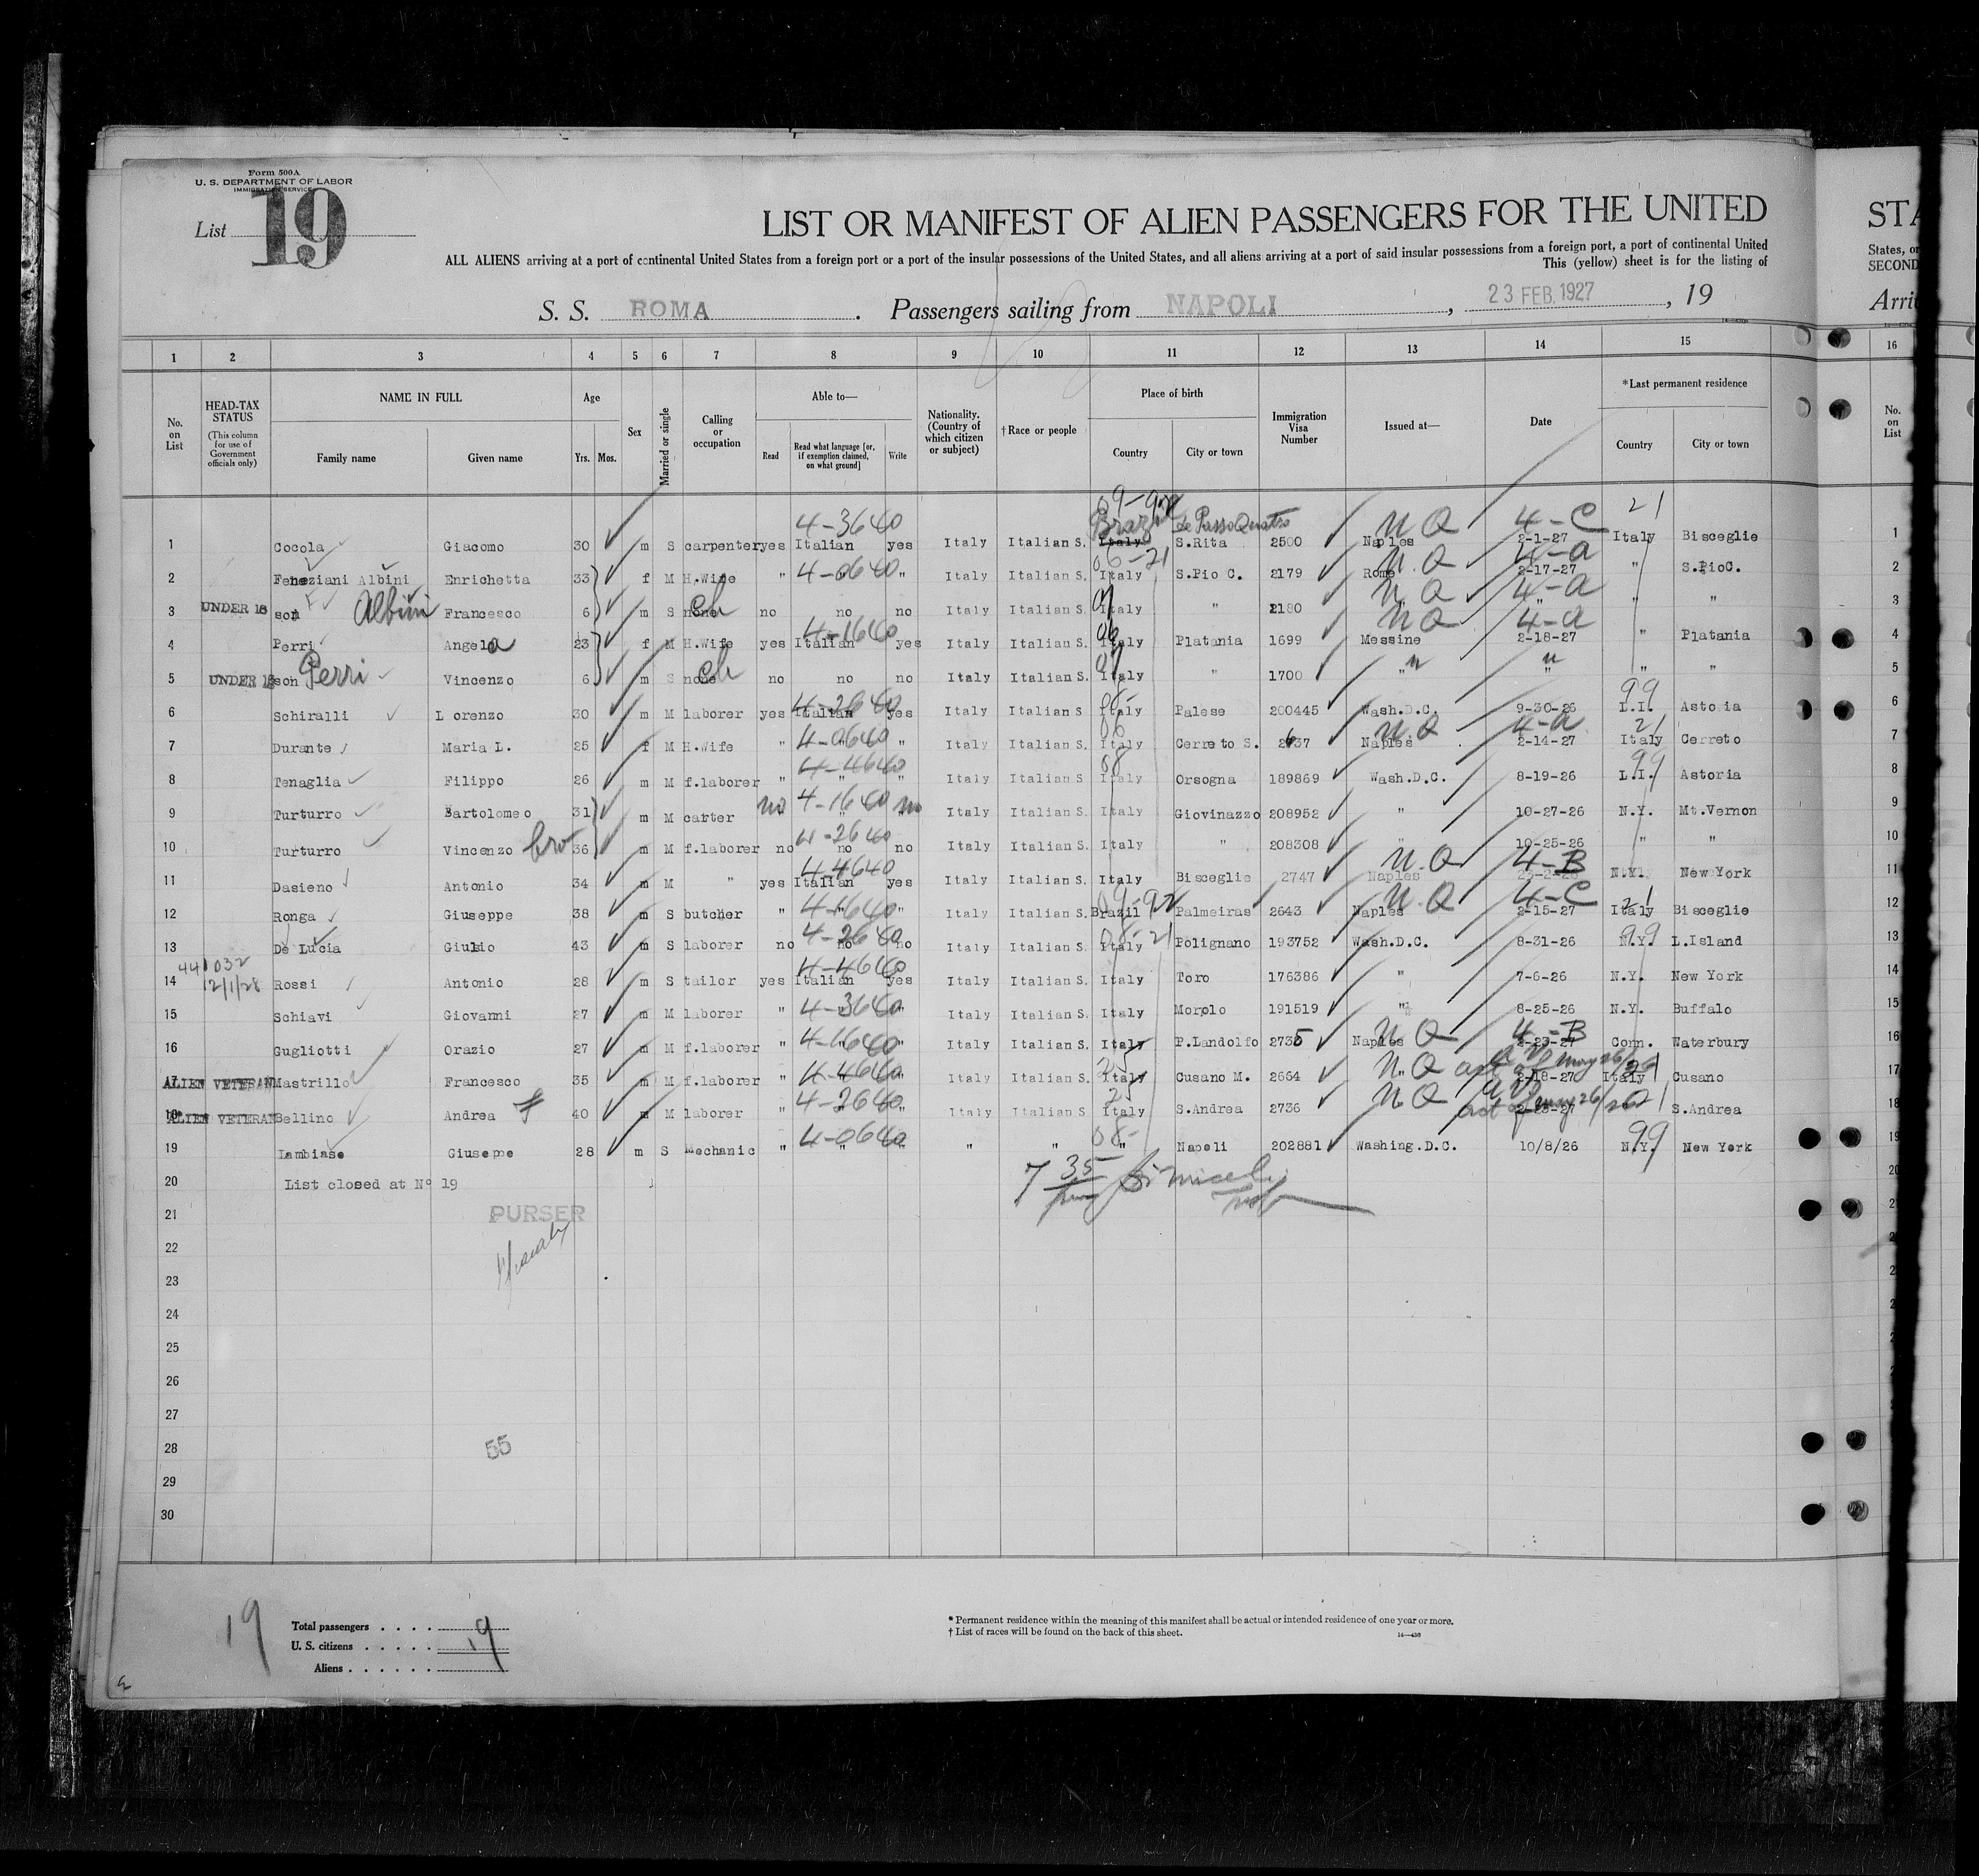 Form 500A
U. S. DEPARTMENT OF LABOR
IMMIGRATION SERVICE
List 19
LIST OR MANIFEST OF ALIEN PASSENGERS FOR THE UNITED
STA
ALL ALIENS arriving at a port of continental United States from a foreign port or a port of the insular possessions of the United States, and all aliens arriving at a port of said insular possessions from a foreign port, a port of continental United
States, or
This (yellow) sheet is for the listing of
SECOND
S. S. ROMA. Passengers sailing from NAPOLI, 23 FEB. 1927, 19
Arri
1 2 3 4 5 6 7 8 9 10 11 12 13 14 15 16
No. on List
HEAD-TAX STATUS (This column for use of Government officials only)
NAME IN FULL
Family name Given name
Age
Yrs. Mos.
Sex
Married or single
Calling or occupation
Able to—
Read Read what language [or, if exemption claimed, on what ground] Write
Nationality. (Country of which citizen or subject)
†Race or people
Place of birth
Country City or town
Immigration Visa Number
Issued at—
Date
*Last permanent residence
Country City or town
No. on List
4-3640 09-92 Brazil de Passo Quatro N Q 4-C 21
1 Cocola Giacomo 30 m S carpenter yes Italian yes Italy Italian S. Italy S.Rita 2500 Naples 2-1-27 Italy Bisceglie 1
4-0640 06-21 N Q 4-a
2 Feneziani Albini Enrichetta 33 f M H.Wife " " " Italy Italian S. Italy S.Pio C. 2179 Rome 2-17-27 " S.PioC. 2
N Q 4-a
UNDER 18 3 son Albini Francesco 6 m S none ch no no no Italy Italian S. Italy " 2180 " " " " 3
4-1640 06 N Q 4-a
4 Perri Angela 23 f M H.Wife yes Italian yes Italy Italian S. Italy Platania 1699 Messine 2-18-27 " Platania 4
5 UNDER 18 son Perri Vincenzo 6 m S none ch no no no Italy Italian S. Italy " 1700 " " " " 5
4-2640 99
6 Schiralli Lorenzo 30 m M laborer yes Italian yes Italy Italian S Italy Palese 200445 Wash.D.C. 9-30-26 L.I. Astoria 6
4-0640 N Q 4-a 21
7 Durante Maria L. 25 f M H.Wife " " " Italy Italian S. Italy Cerreto S. 2637 Naples 2-14-27 Italy Cerreto 7
4-4640 08 99
8 Tenaglia Filippo 26 m M f.laborer " " " Italy Italian S Italy Orsogna 189869 Wash.D.C. 8-19-26 L.I. Astoria 8
4-1640
9 Turturro Bartolomeo 31 m M carter no no Italy Italian S. Italy Giovinazzo 208952 " 10-27-26 N.Y. Mt.Vernon 9
4-2640
10 Turturro Vincenzo bro 36 m M f.laborer no no no Italy Italian S. Italy " 208308 " 10-25-26 " " 10
4-4640 N Q 4-B
11 Dasieno Antonio 34 m M " yes Italian yes Italy Italian S. Italy Bisceglie 2747 Naples N.Y. New York 11
4-1640 09-92 N Q 4-C 21
12 Ronga Giuseppe 38 m S butcher " " " Italy Italian S. Brazil Palmeiras 2643 Naples 2-15-27 Italy Bisceglie 12
4-2640 08-21 99
13 De Lucia Giulio 43 m S laborer no no no Italy Italian S. Italy Polignano 193752 Wash.D.C. 8-31-26 N.Y. L.Island 13
441032 4-4640
14 12/1/28 Rossi Antonio 28 m S tailor yes Italian yes Italy Italian S. Italy Toro 176386 " 7-6-26 N.Y. New York 14
4-3640
15 Schiavi Giovanni 27 m M laborer " " Italy Italian S. Italy Morolo 191519 " 8-25-26 N.Y. Buffalo 15
4-1640 N Q 4-B
16 Gugliotti Orazio 27 m M f.laborer " " Italy Italian S. Italy P.Landolfo 2735 Naples 2-23-27 Conn. Waterbury 16
4-4640 25 N Q act of May 26/26 21
17 ALIEN VETERAN Mastrillo Francesco 35 m M f.laborer " " Italy Italian S. Italy Cusano M. 2664 " 2-18-27 Italy Cusano 17
4-2640 25 N Q act of May 26/26 21
18 ALIEN VETERAN Bellino Andrea 40 m M laborer " " Italy Italian S Italy S.Andrea 2736 2-23-27 S.Andrea 18
4-0640 08- 99
19 Iambiase Giuseppe 28 m S Mechanic " " " " " " Napoli 202881 Washing.D.C. 10/8/26 N.Y. New York 19
20 List closed at No 19 7 35 20
21 PURSER
22
23
24
25
26
27
28 55
29
30
19
Total passengers . . . . 19
U. S. citizens . . . . .
Aliens . . . . . .
* Permanent residence within the meaning of this manifest shall be actual or intended residence of one year or more.
† List of races will be found on the back of this sheet.
14—430